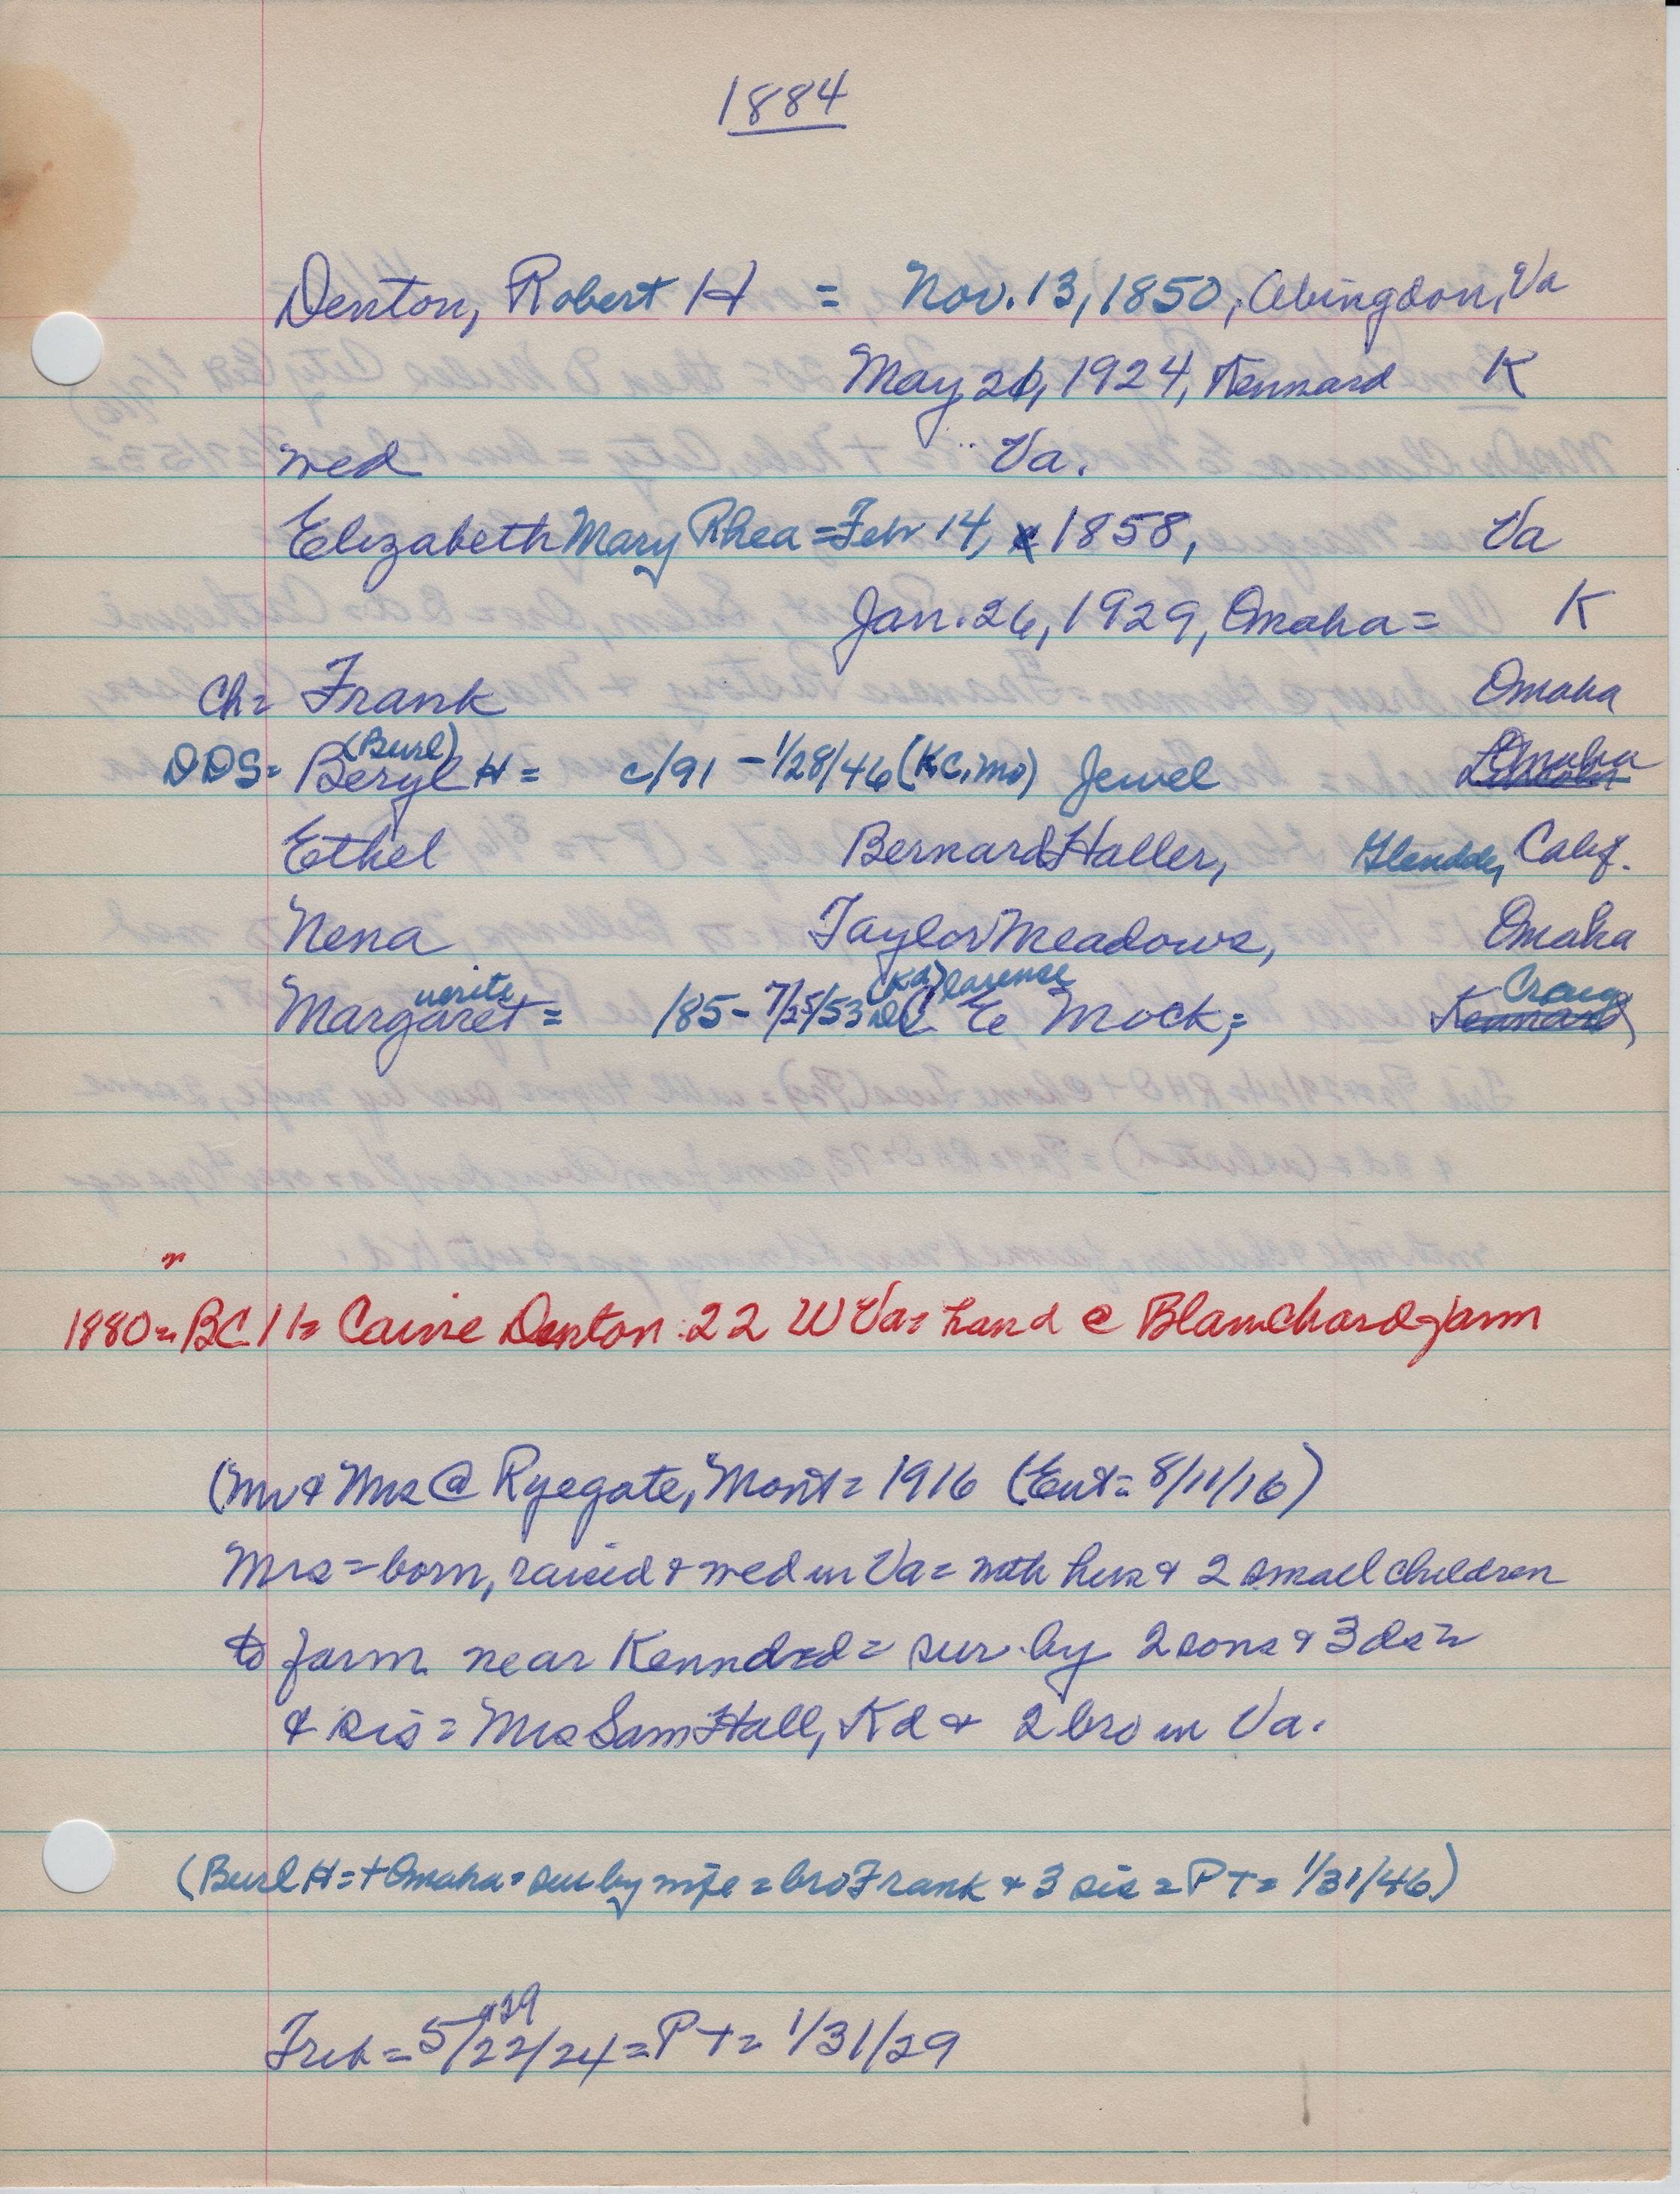 1884
Denton, Robert H = Nov. 13, 1850, Abingdon, Va
May 26, 1924, Kennard K
wed Va.
Elizabeth Mary Rhea = Feb 14, 1858, Va
Jan. 26, 1929, Omaha = K
Ch= Frank Omaha
DDS= Beryl (Burl) H = c/91 - 1/28/46 (K.C, Mo) Jewel Omaha
Ethel Bernard Haller, Glendale, Calif.
Nena Taylor Meadows, Omaha
Margaret uerite = /85 - 7/25/53 (Kd) Clarence E Mock; Kennard Craig
1880 = BC 11 = Caine Denton 22 W Va = hand @ Blanchard farm
(Mr & Mrs @ Ryegate, Mont = 1916 (Ent = 8/11/16)
Mrs = born, raised & wed in Va = with hus & 2 small children
to farm near Kennard = sur. by 2 sons & 3 ds =
& sis = Mrs Sam Hall, Kd & 2 bro in Va.
(Burl H = + Omaha = sur by wife = bro Frank & 3 sis = P T = 1/31/46)
Trib = 5/22 & 29/24 = P T = 1/31/29